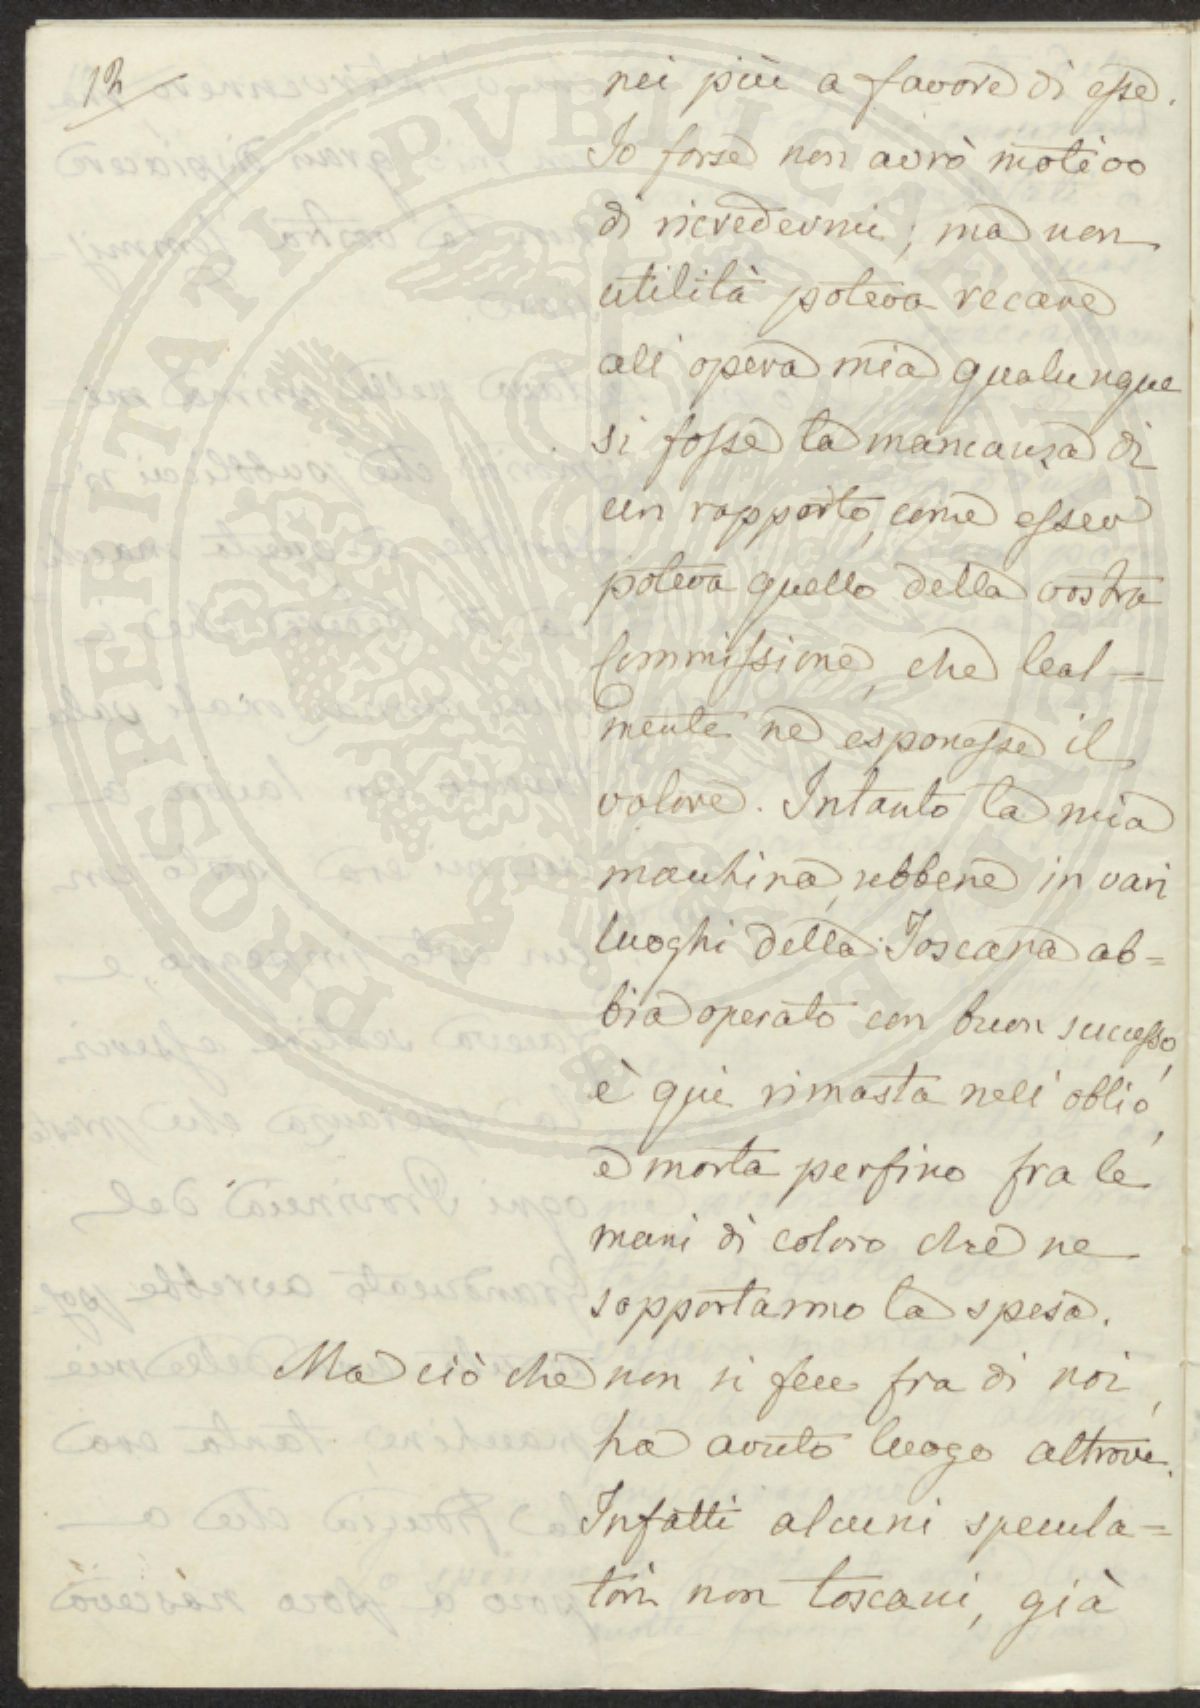 12
nei più a favore di esse.
Io forse non avrò motivo
di ricredermi; ma non
utilità poteva recare
all' opera mia qualunque
si fosse la mancanza di
un rapporto, come esser
poteva quello della vostra
Commissione, che leal-
mente ne esponesse il
valore. Intanto la mia
machina, sebbene in vari
luoghi della Toscana ab=
bia operato con buon successo,
è qui rimasta nell' oblio,
e morta perfino fra le
mani di coloro che ne
sopportarono la spesa.
Ma ciò che non si fece fra di noi,
ha avuto luogo altrove.
Infatti alcuni specula=
tori non toscani, già
PROSPERITATI PUBLICAE AUGENDAE